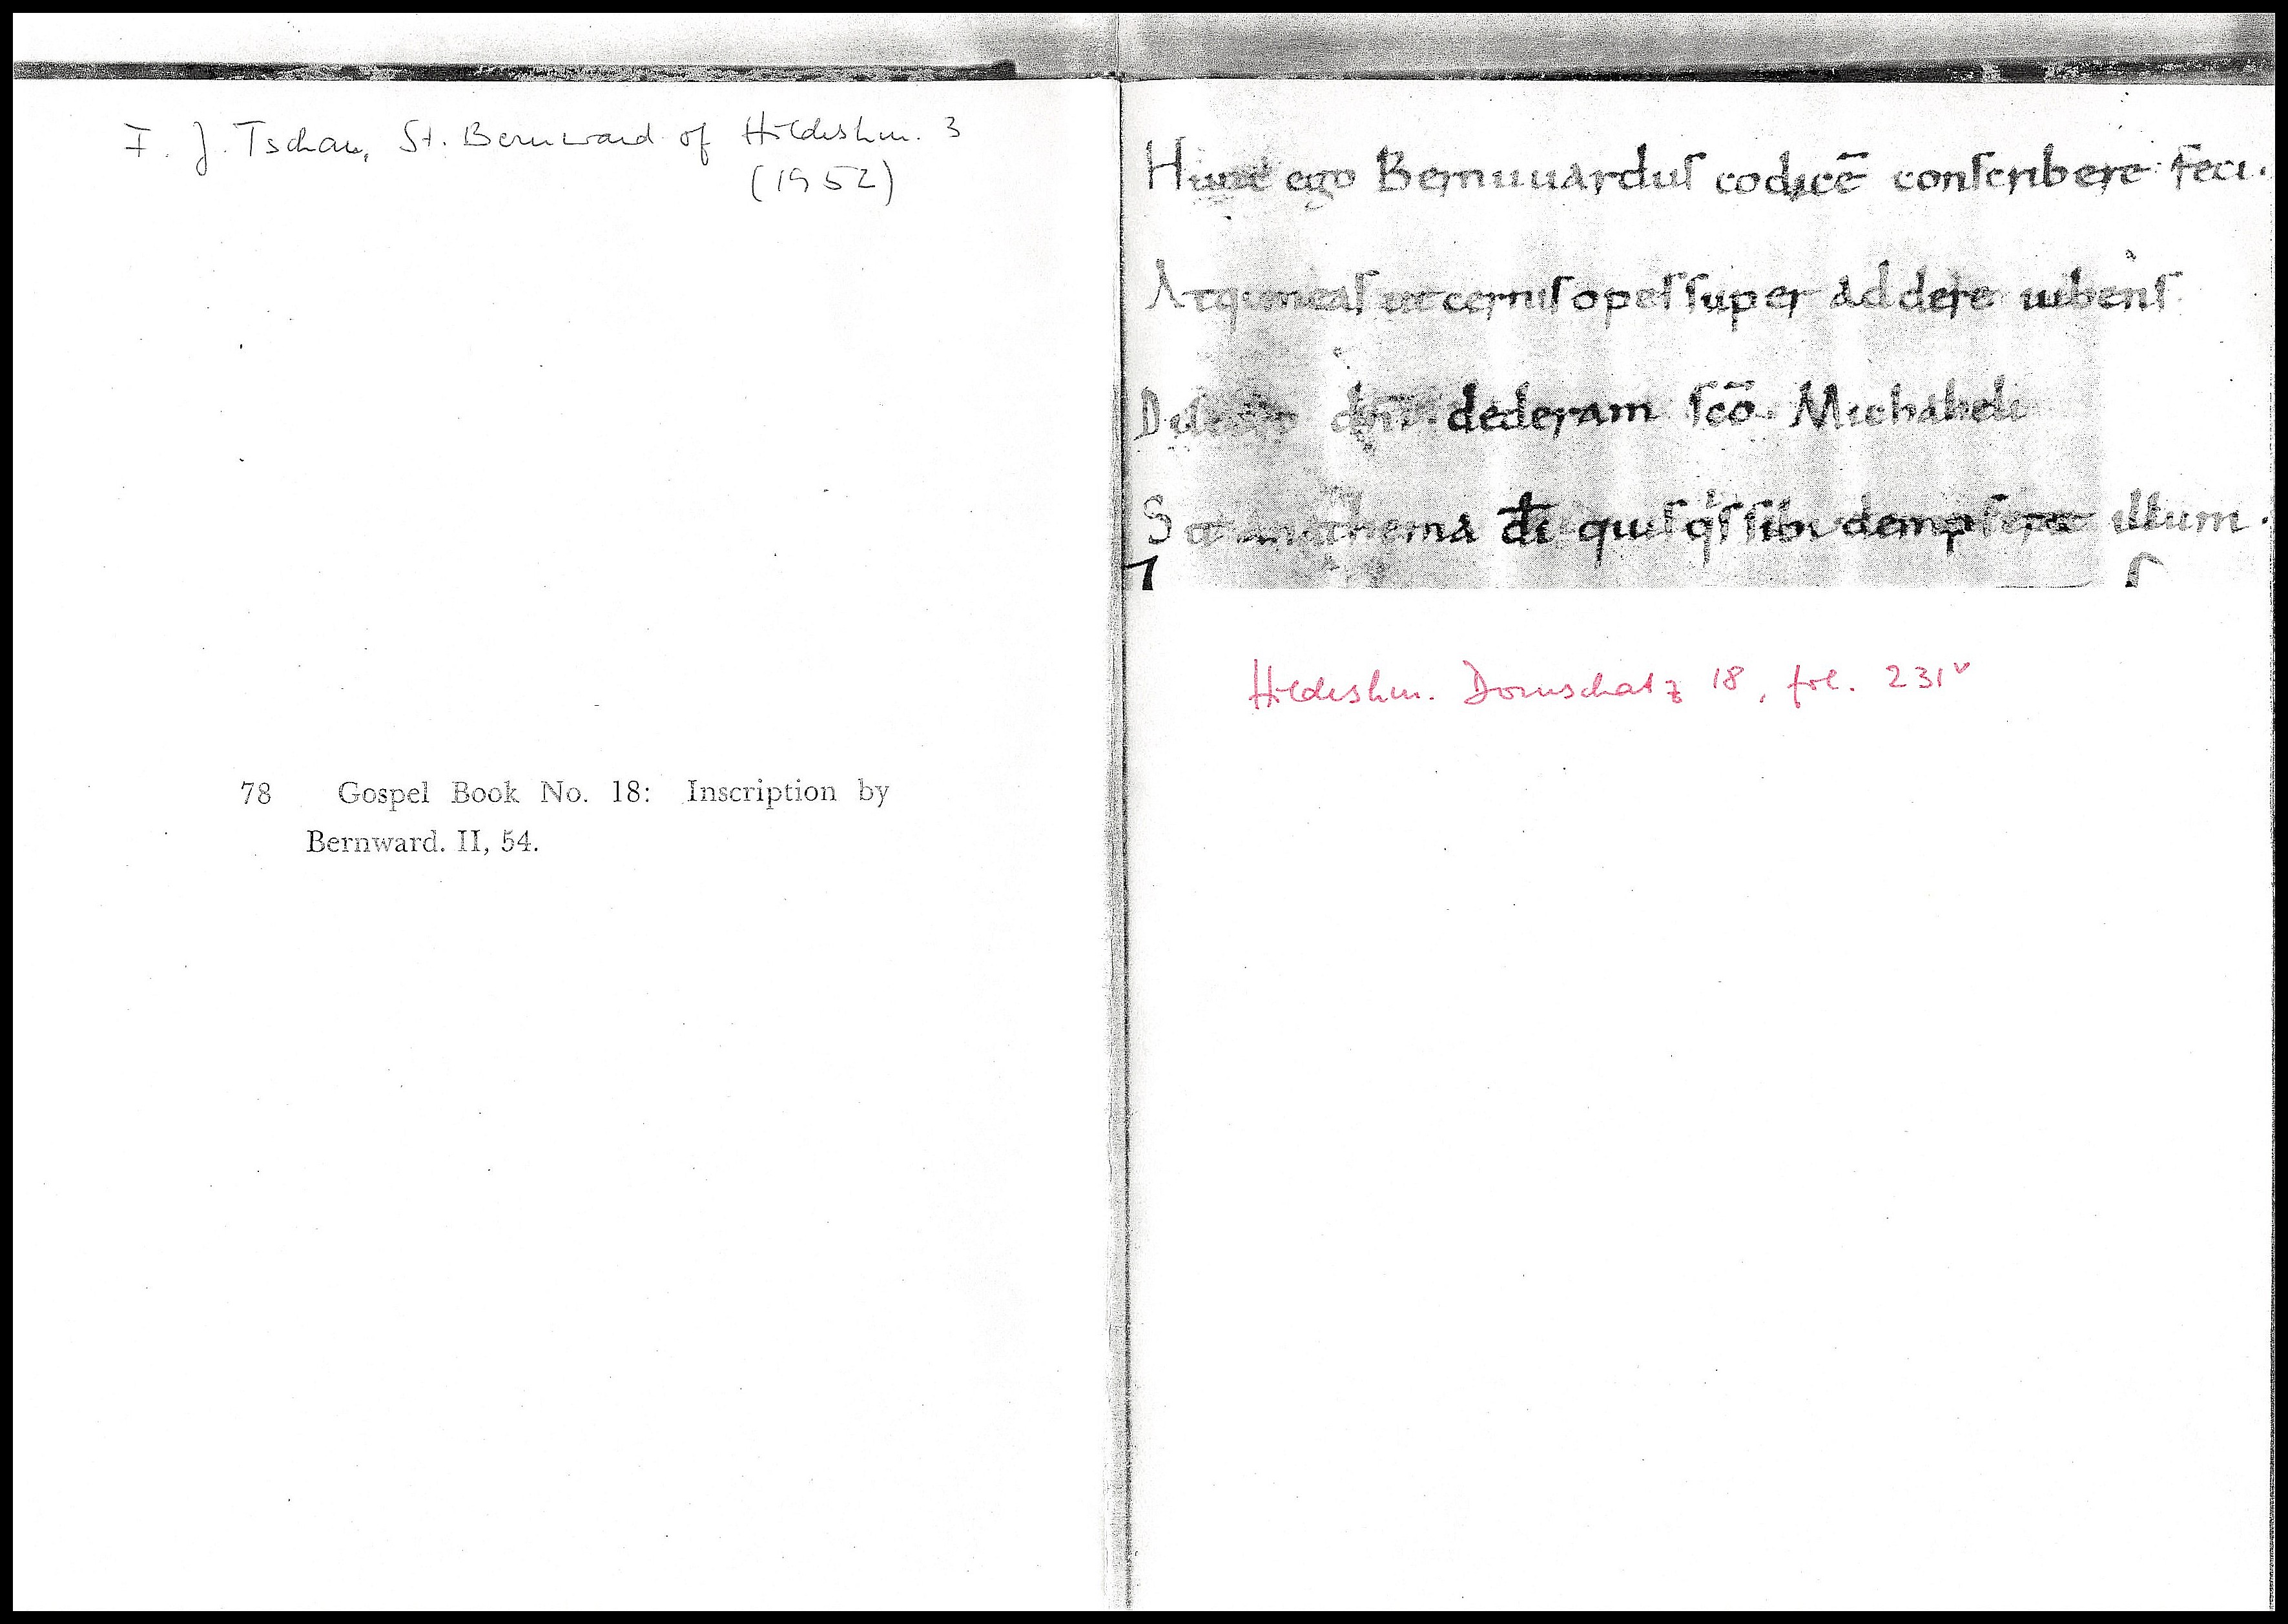 F. J. Tschan, St. Bernward of Hildeshm. 3
(1952)
78 Gospel Book No. 18: Inscription by
Bernward. II, 54.
Hunc ego Bernuuarduſ codicē conſcribere feci.
Atq; meaſ ut cerniſ opeſ ſuper addere iubenſ
Dilecto dn̄i dederam ſc̄o Michaheli
Sit anathema dī quiſq'ſ ſibi dempſerit illum.
Hildeshm. Domschatz 18, fol. 231v